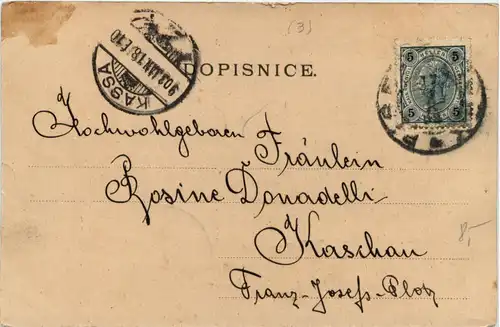 (3)
DOPISNICE.
KASSA
5 5
5 5
Hochwohlgeboren
Fräulein
Rosine Donadelli
Kaschau
Franz-Josefs-Platz
8,-